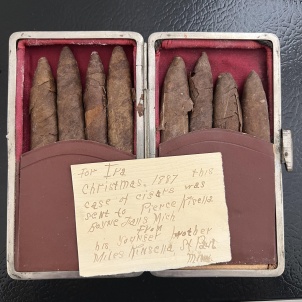 For Ira
Christmas, 1887 this
case of cigars was
sent to Pierce Kinsella
Boyne Falls Mich
From
his younger brother
Miles Kinsella St. Paul
Minn.